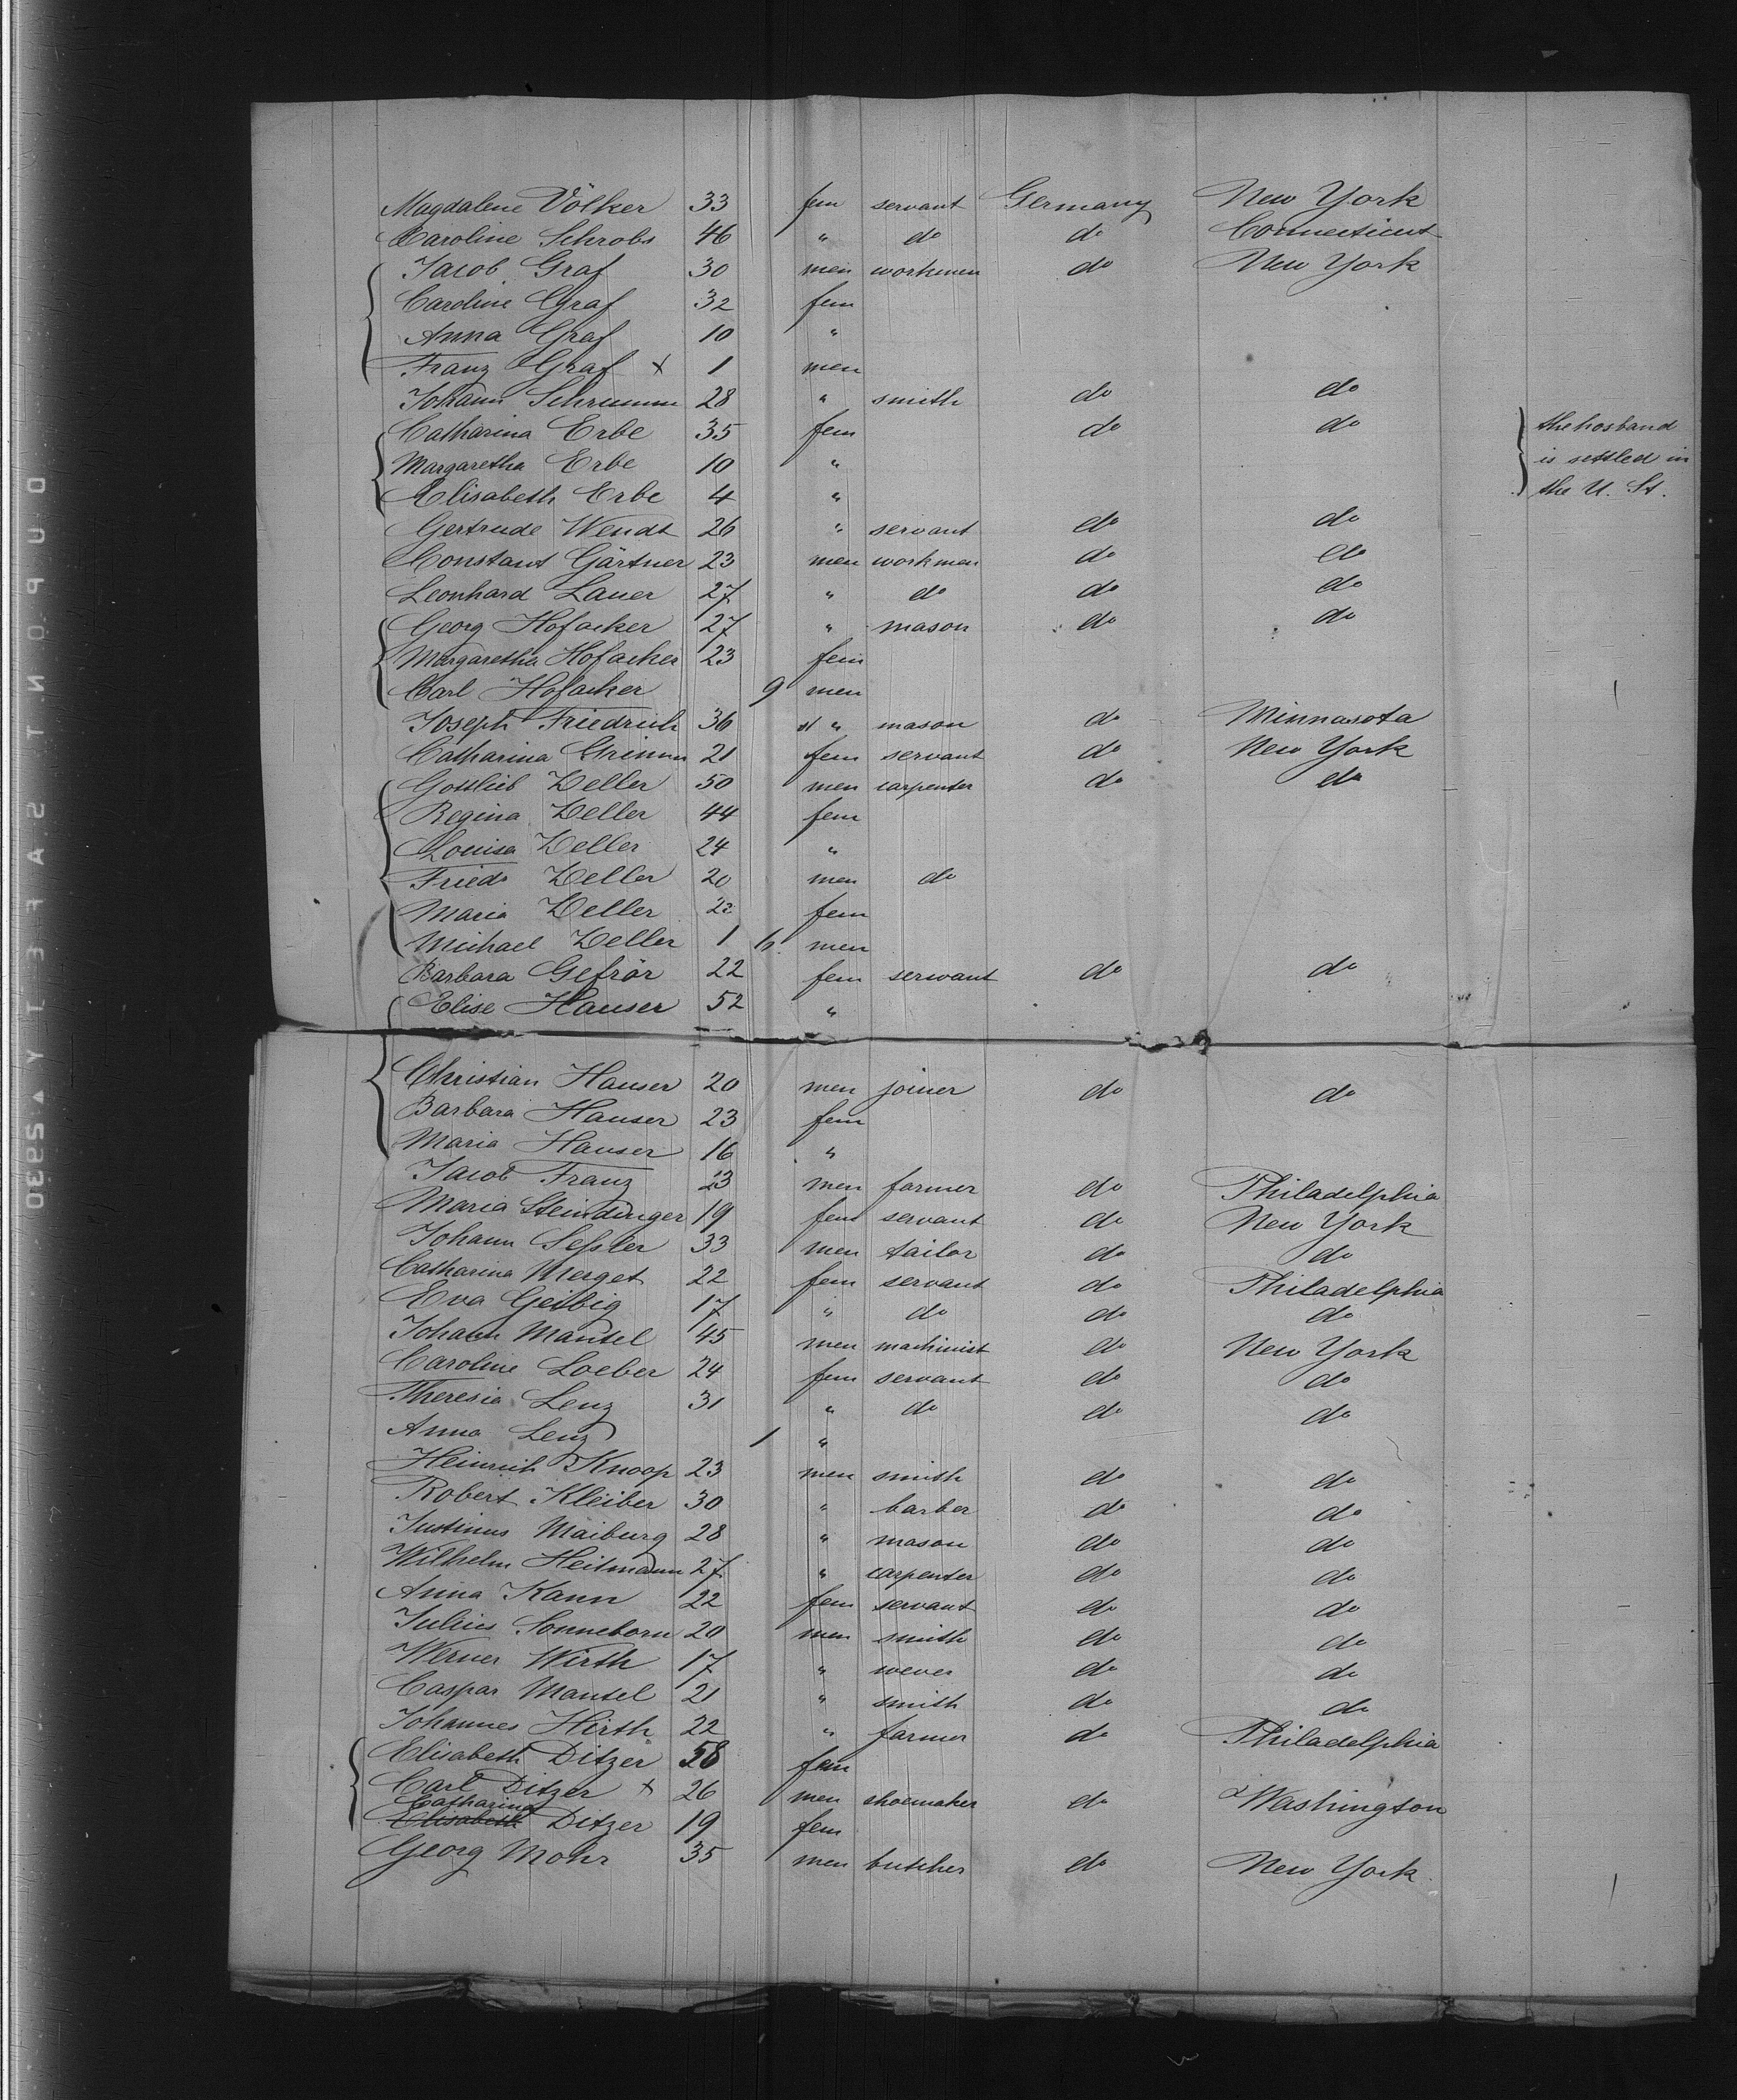 Magdalene Völker 33 fem servant Germany New York
Caroline Schrobs 46 " do do Connecticut
Jacob Graf 30 men workmen do New York
Caroline Graf 32 fem
Anna Graf 10 "
Franz Graf x 1 men
Johann Schrumm 28 " smith do do
Catharina Erbe 35 fem do do the hosband
Margaretha Erbe 10 " is settled in
Elisabeth Erbe 4 " the U. St.
Gertrude Wendt 26 " servant do do
Constant Gärtner 23 men workmen do do
Leonhard Lauer 27 " do do do
Georg Hofacker 27 " mason do do
Margaretha Hofacker 23 fem
Carl Hofacker 9 men
Joseph Friedrich 36 " mason do Minnasota
Catharina Grimm 21 fem servant do New York
Gottlieb Zeller 50 men carpenter do do
Regina Zeller 44 fem
Louisa Zeller 24 "
Friedr Zeller 20 men do
Maria Zeller 22 fem
Michael Zeller 1 6 men
Barbara Gefrör 22 fem servant do do
Elise Hauser 52 "
Christian Hauser 20 men joiner do do
Barbara Hauser 23 fem
Maria Hauser 16 "
Jacob Franz 23 men farmer do Philadelphia
Maria Steindinger 19 fem servant do New York
Johann Seßler 33 men tailor do do
Catharina Merget 22 fem servant do Philadelphia
Eva Geibig 17 " do do do
Johann Mantel 45 men machinist do New York
Caroline Loeber 24 fem servant do do
Theresia Lenz 31 " do do do
Anna Lenz 1 "
Heinrich Knoop 23 men smith do do
Robert Kleiber 30 " barber do do
Justinus Maiburg 28 " mason do do
Wilhelm Heitmann 27 " carpenter do do
Anna Kann 22 fem servant do do
Julius Sonneborn 20 men smith do do
Werner Wirth 17 " wever do do
Caspar Mantel 21 " smith do do
Johannes Hirth 22 " farmer do Philadelphia
Elisabeth Ditzer 58 fem
Carl Ditzer x 26 men shoemaker do Washington
Catharina
Elisabeth Ditzer 19 fem
Georg Mohr 35 men butcher do New York